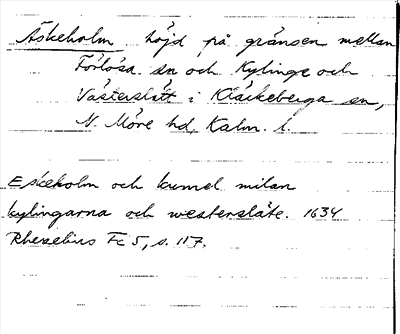 Äskeholm höjd på gränsen mellan
Förlösa sn och Kylinge och
Västerslätt i Kläckeberga sn,
N. Möre hd, Kalm. l.
Eskeholm och kumel milan
kylingarna och westersläte. 1634
Rhezelius Fc 5, s. 117.